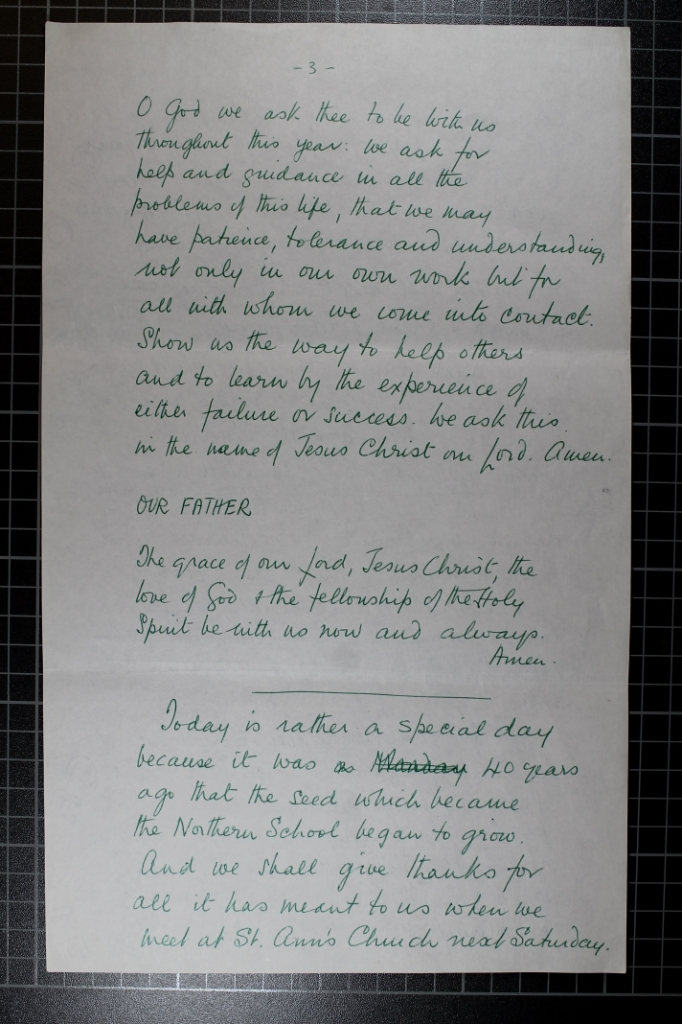 - 3 -
O God we ask thee to be with us
throughout this year: we ask for
help and guidance in all the
problems of this life, that we may
have patience, tolerance and understanding,
not only in our own work but for
all with whom we come into contact.
Show us the way to help others
and to learn by the experience of
either failure or success. We ask this
in the name of Jesus Christ our Lord. Amen.
OUR FATHER
The grace of our Lord, Jesus Christ, the
love of God & the fellowship of the Holy
Spirit be with us now and always.
Amen.
Today is rather a special day
because it was Monday 40 years
ago that the seed which became
the Northern School began to grow.
And we shall give thanks for
all it has meant to us when we
meet at St. Ann's Church next Saturday.